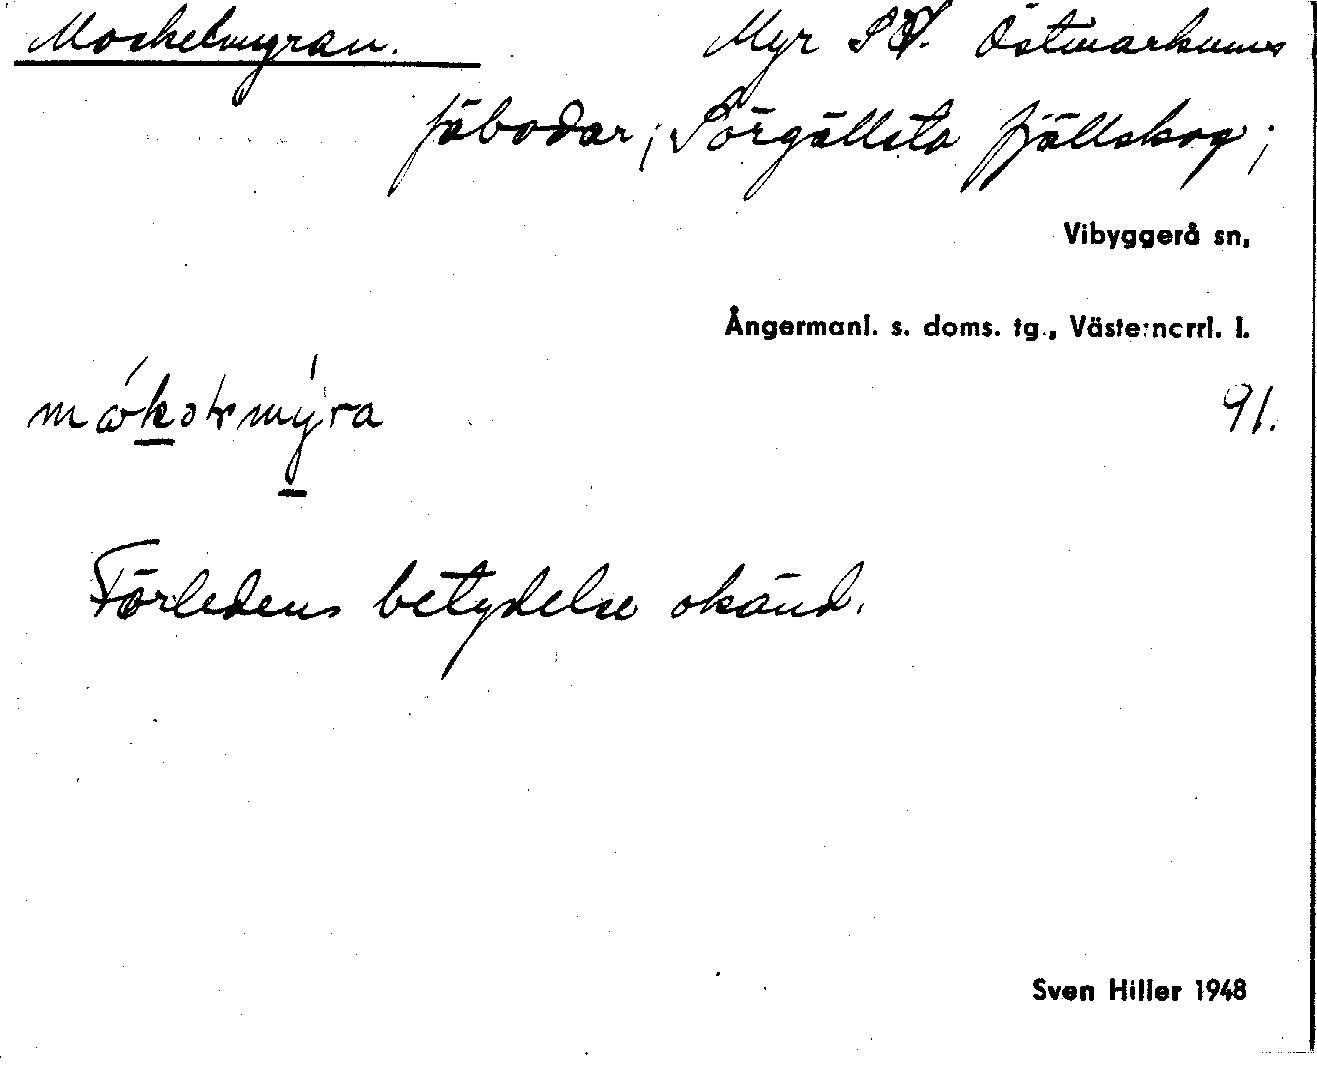 Mockelmyran. Myr SV. Östmarkums
fäbodar; Sörgällsta fjällskog;
Vibyggerå sn,
Ångermanl. s. doms. tg., Västernorrl. l.
91.
Förledens betydelse okänd.
Sven Hiller 1948